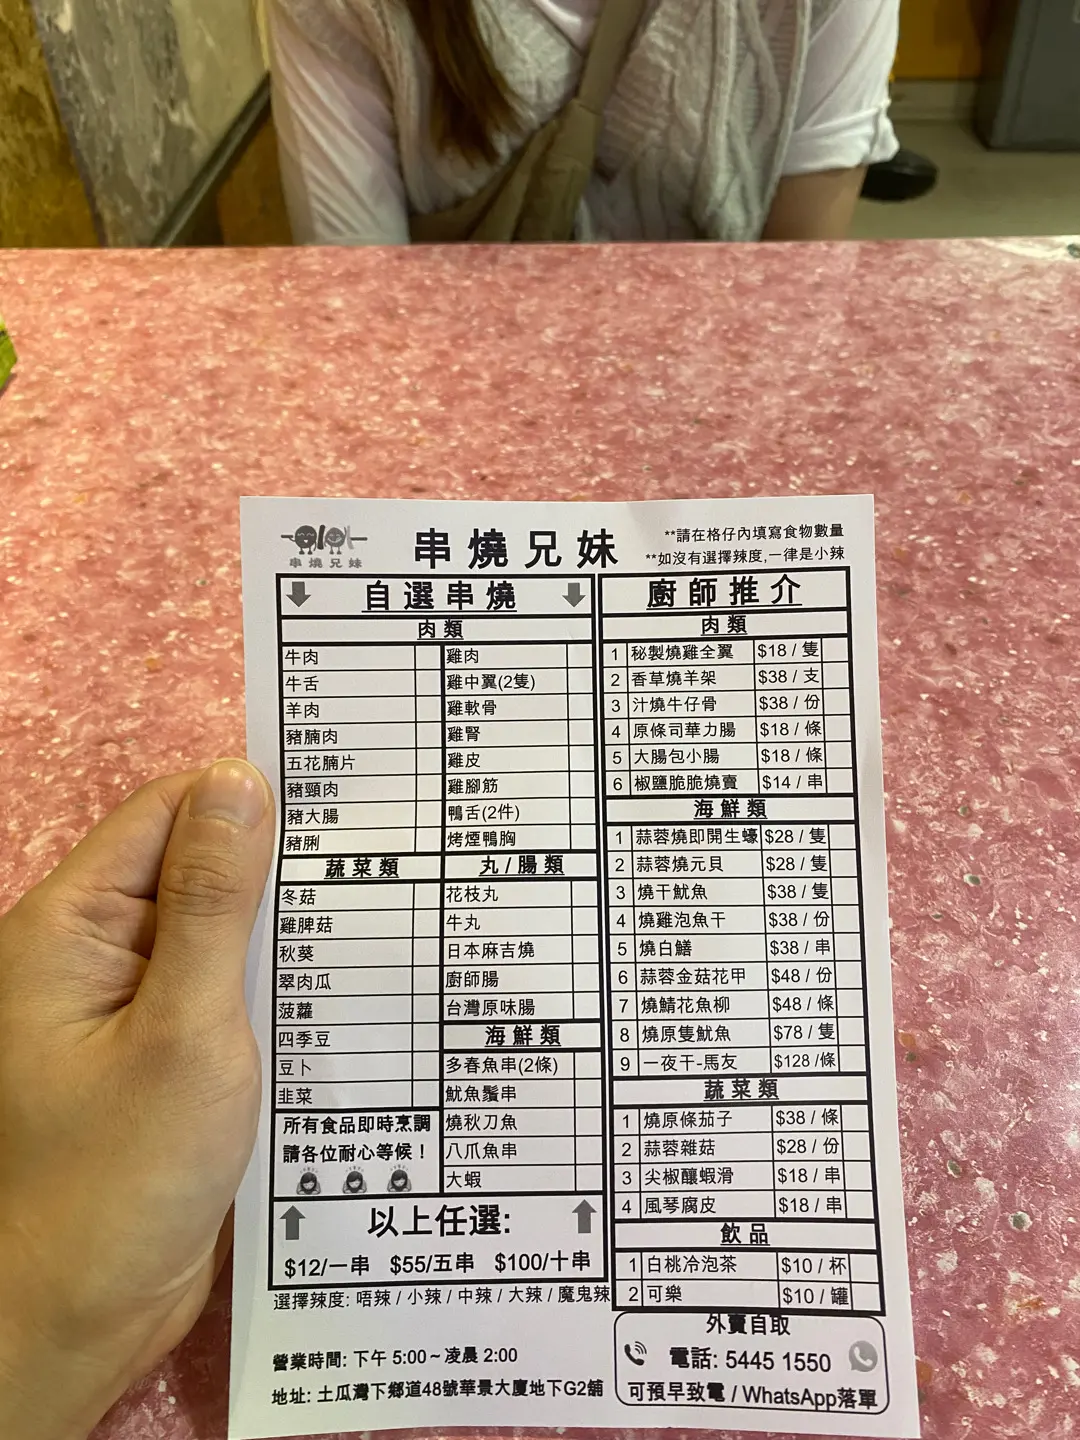 串燒兄妹
串燒兄妹
**請在格仔內填寫食物數量
**如沒有選擇辣度,一律是小辣
自選串燒
肉類
牛肉 雞肉
牛舌 雞中翼(2隻)
羊肉 雞軟骨
豬腩肉 雞腎
五花腩片 雞皮
豬頸肉 雞腳筋
豬大腸 鴨舌(2件)
豬脷 烤煙鴨胸
蔬菜類
冬菇
雞脾菇
秋葵
翠肉瓜
菠蘿
四季豆
豆卜
韭菜
所有食品即時烹調
請各位耐心等候！
丸/腸類
花枝丸
牛丸
日本麻吉燒
廚師腸
台灣原味腸
海鮮類
多春魚串(2條)
魷魚鬚串
燒秋刀魚
八爪魚串
大蝦
以上任選:
$12/一串 $55/五串 $100/十串
選擇辣度: 唔辣 / 小辣 / 中辣 / 大辣 / 魔鬼辣
營業時間: 下午 5:00 ~ 凌晨 2:00
地址: 土瓜灣下鄉道48號華景大廈地下G2舖
廚師推介
肉類
1 秘製燒雞全翼 $18 / 隻
2 香草燒羊架 $38 / 支
3 汁燒牛仔骨 $38 / 份
4 原條司華力腸 $18 / 條
5 大腸包小腸 $18 / 條
6 椒鹽脆脆燒賣 $14 / 串
海鮮類
1 蒜蓉燒即開生蠔 $28 / 隻
2 蒜蓉燒元貝 $28 / 隻
3 燒干魷魚 $38 / 隻
4 燒雞泡魚干 $38 / 份
5 燒白鱔 $38 / 串
6 蒜蓉金菇花甲 $48 / 份
7 燒鯖花魚柳 $48 / 條
8 燒原隻魷魚 $78 / 隻
9 一夜干-馬友 $128 /條
蔬菜類
1 燒原條茄子 $38 / 條
2 蒜蓉雜菇 $28 / 份
3 尖椒釀蝦滑 $18 / 串
4 風琴腐皮 $18 / 串
飲品
1 白桃冷泡茶 $10 / 杯
2 可樂 $10 / 罐
外賣自取
電話: 5445 1550
可預早致電 / WhatsApp落單